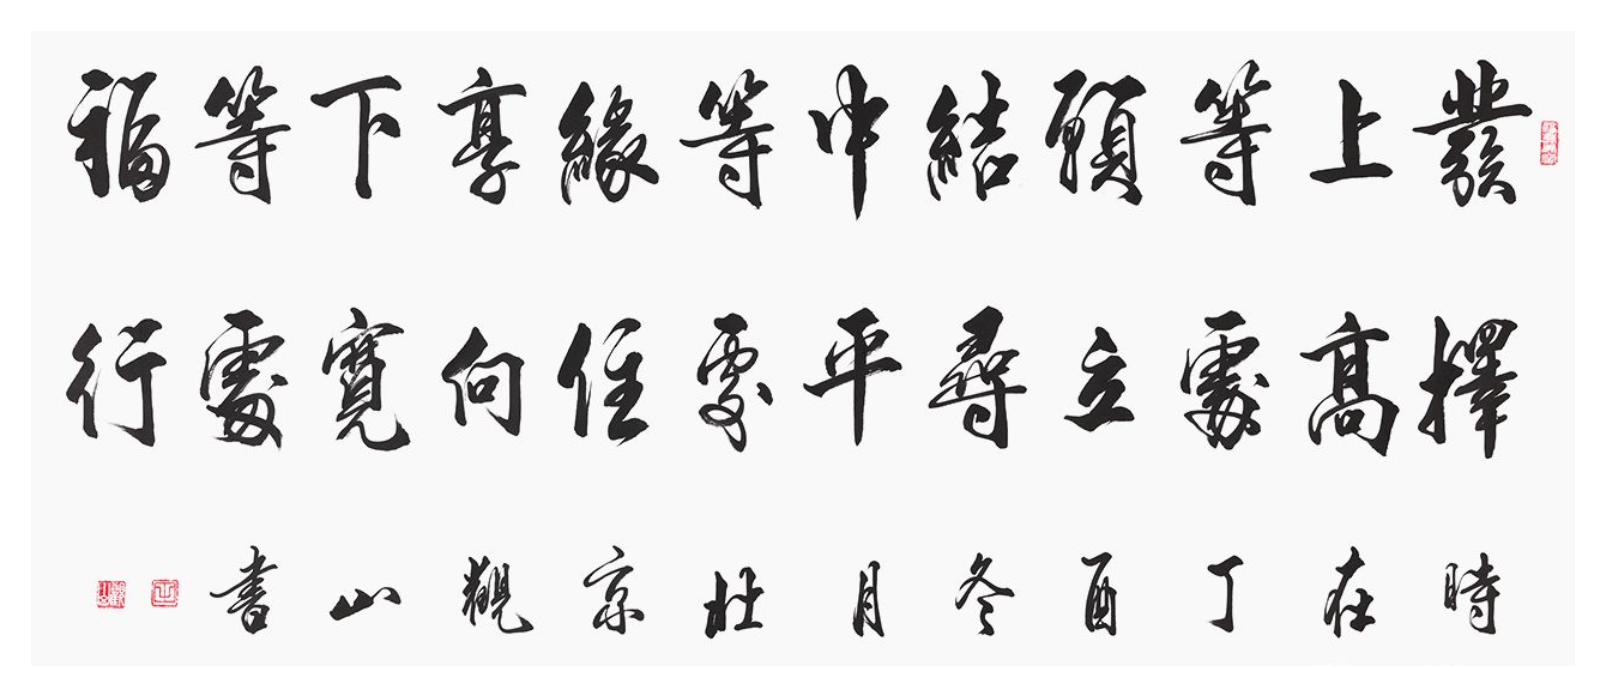 發上等願結中等緣享下等福
擇高處立尋平處住向寬處行
時在丁酉冬月北京觀山書